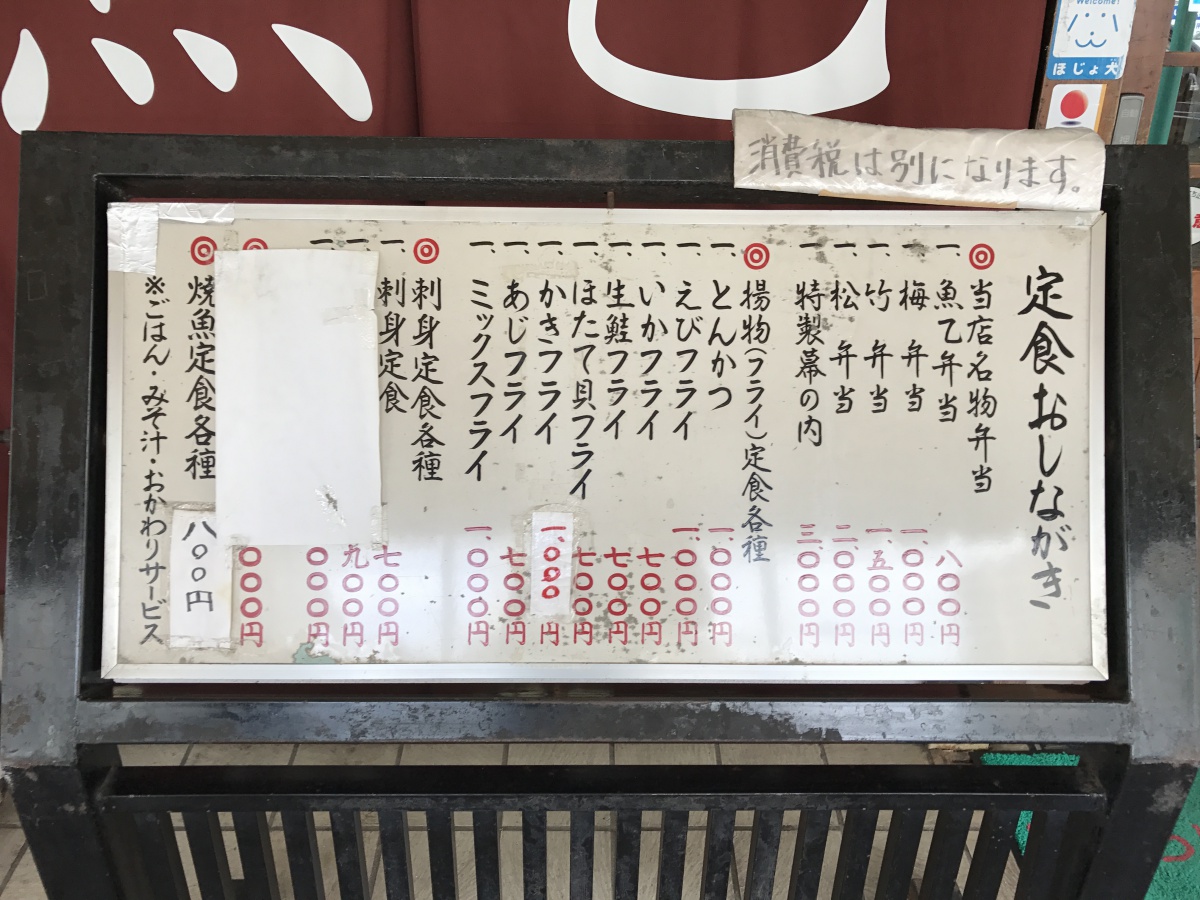 Welcome!
ほじょ犬
消費税は別になります。
定食おしながき
◎当店名物弁当
一、魚乙弁当 八〇〇円
一、梅弁当 一、〇〇〇円
一、竹弁当 一、五〇〇円
一、松弁当 二、〇〇〇円
一、特製幕の内 三、〇〇〇円
◎揚物(フライ)定食各種
一、とんかつ 一、〇〇〇円
一、えびフライ 一、〇〇〇円
一、いかフライ 七〇〇円
一、生鮭フライ 七〇〇円
一、ほたて貝フライ 七〇〇円
一、かきフライ 一、〇〇〇円
一、あじフライ 七〇〇円
一、ミックスフライ 一、〇〇〇円
◎刺身定食各種
一、刺身定食 七〇〇円
一、 九〇〇円
一、 〇〇〇円
◎ 〇〇〇円
◎焼魚定食各種 八〇〇円
※ごはん、みそ汁・おかわりサービス